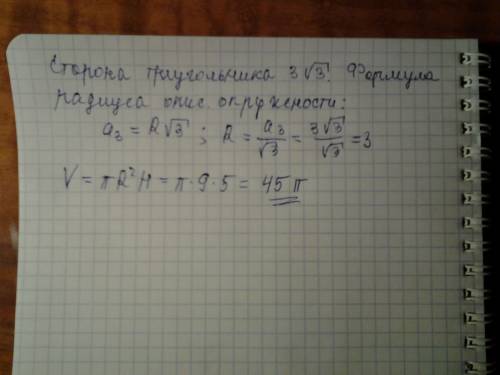 Сторона триугольника 3√3. Формула
радиуса опис. окружности:
a₃ = R√3 ; R = a₃/√3 = 3√3/√3 = 3
V = πR²H = π·9·5 = 45π